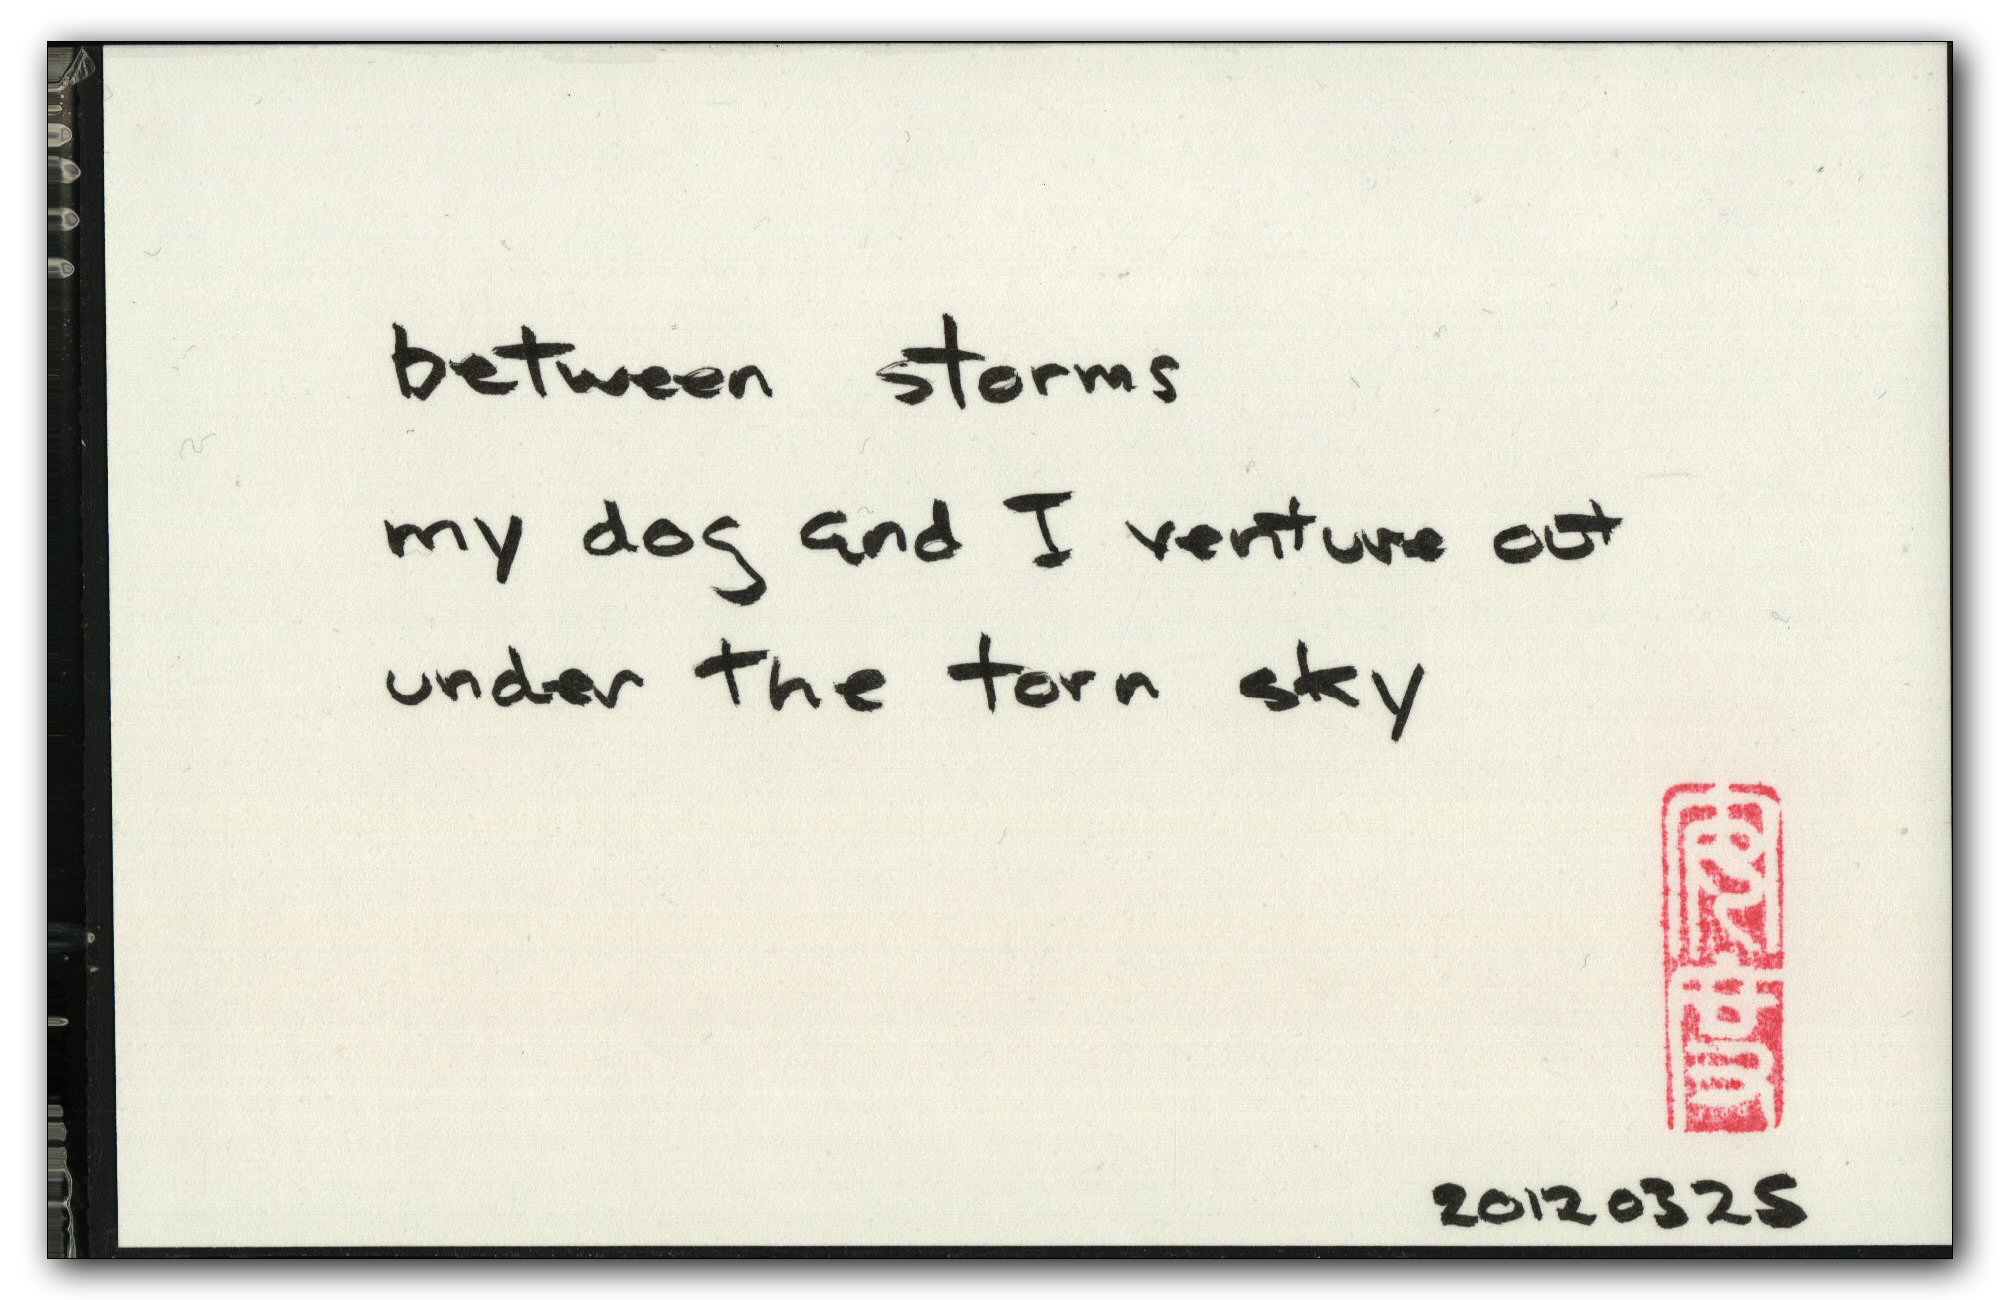 between storms
my dog and I venture out
under the torn sky
20120325